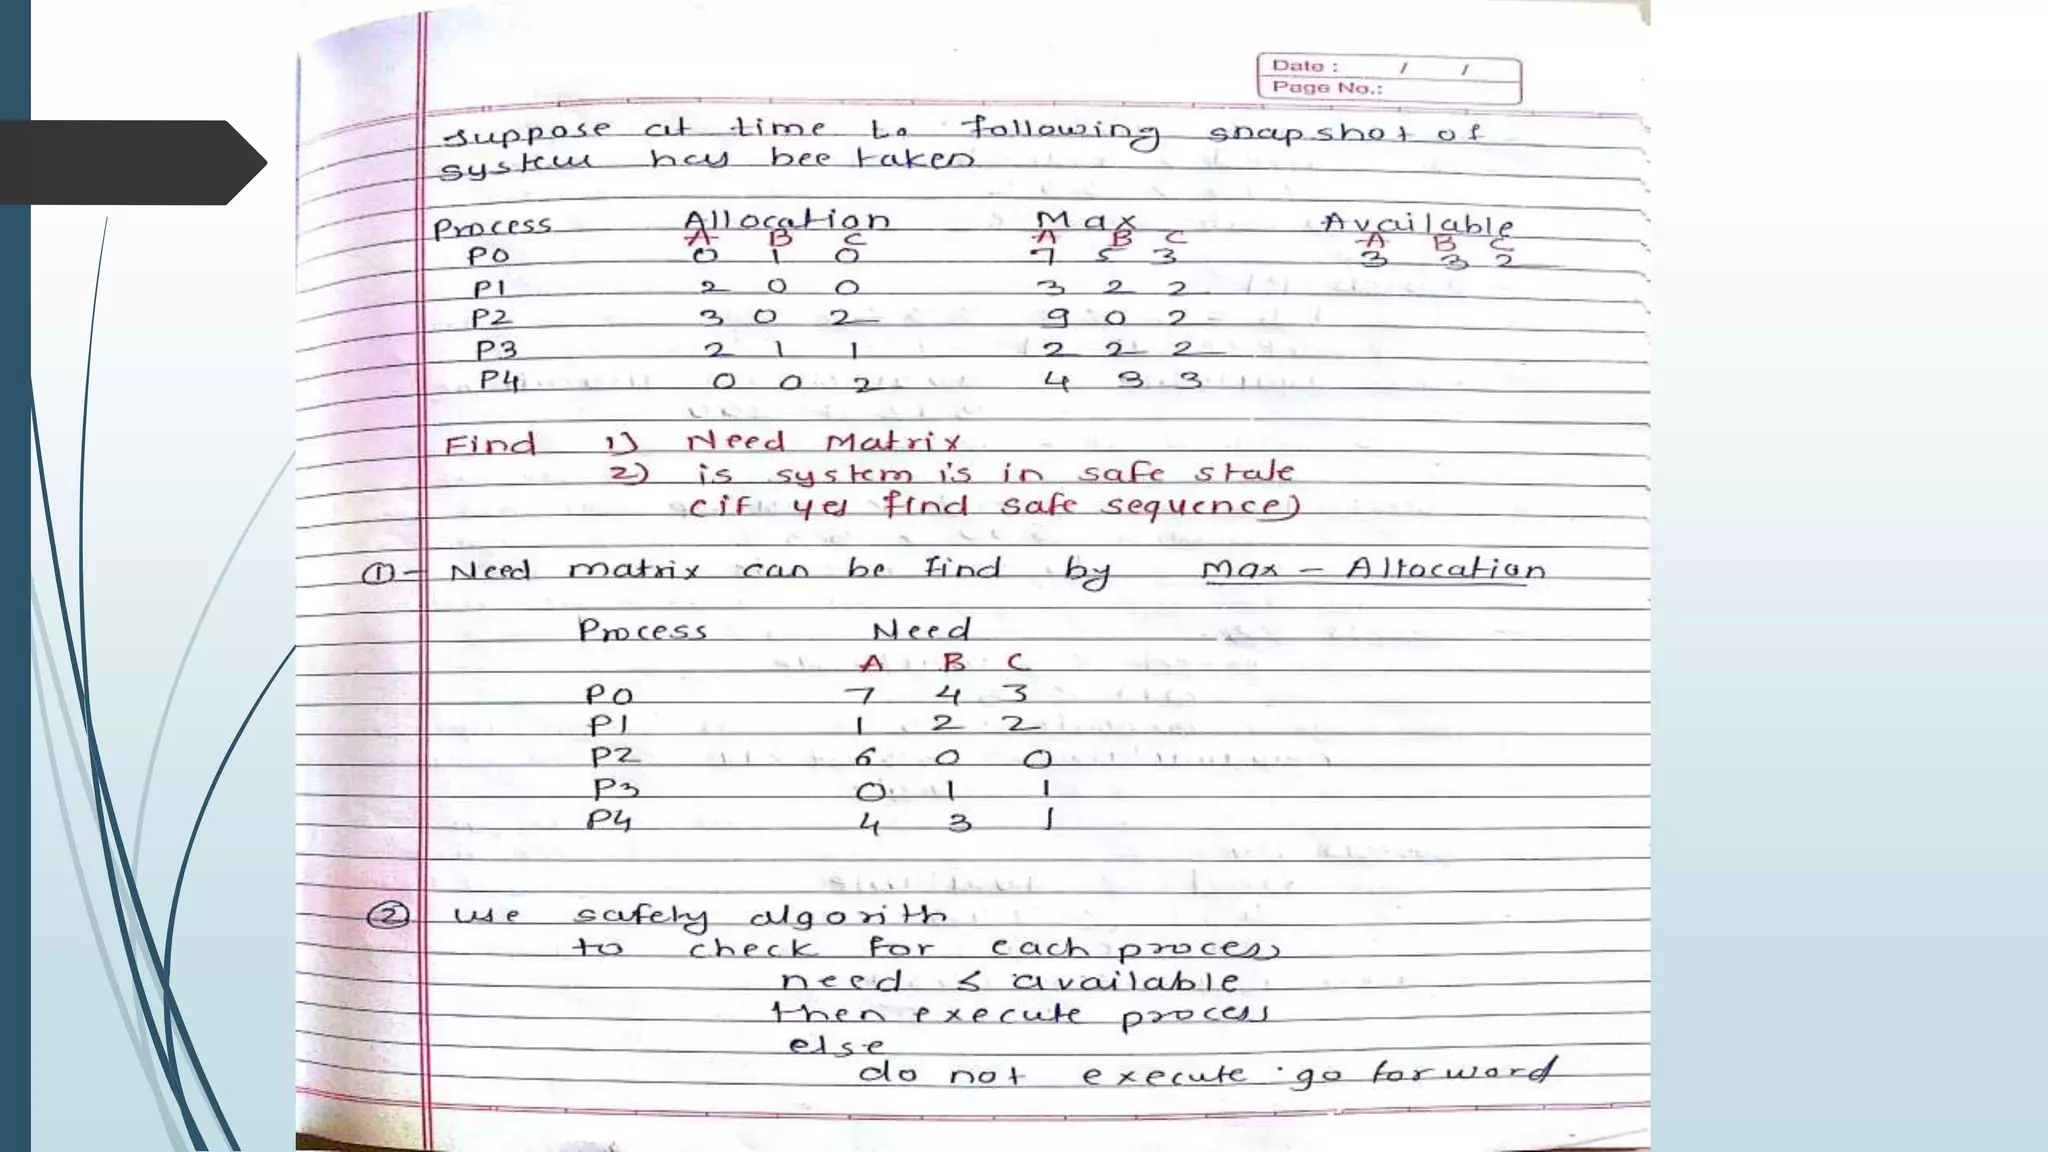 Date : / /
Page No.:
suppose at time to following snapshot of
system has bee taken
Process Allocation Max Available
A B C A B C A B C
P0 0 1 0 7 5 3 3 3 2
P1 2 0 0 3 2 2
P2 3 0 2 9 0 2
P3 2 1 1 2 2 2
P4 0 0 2 4 3 3
Find 1) Need Matrix
2) is system is in safe state
(if yes find safe sequence)
① - Need matrix can be find by Max - Allocation
Process Need
A B C
P0 7 4 3
P1 1 2 2
P2 6 0 0
P3 0 1 1
P4 4 3 1
② use safety algorith
to check for each process
need ≤ available
then execute process
else
do not execute go forword